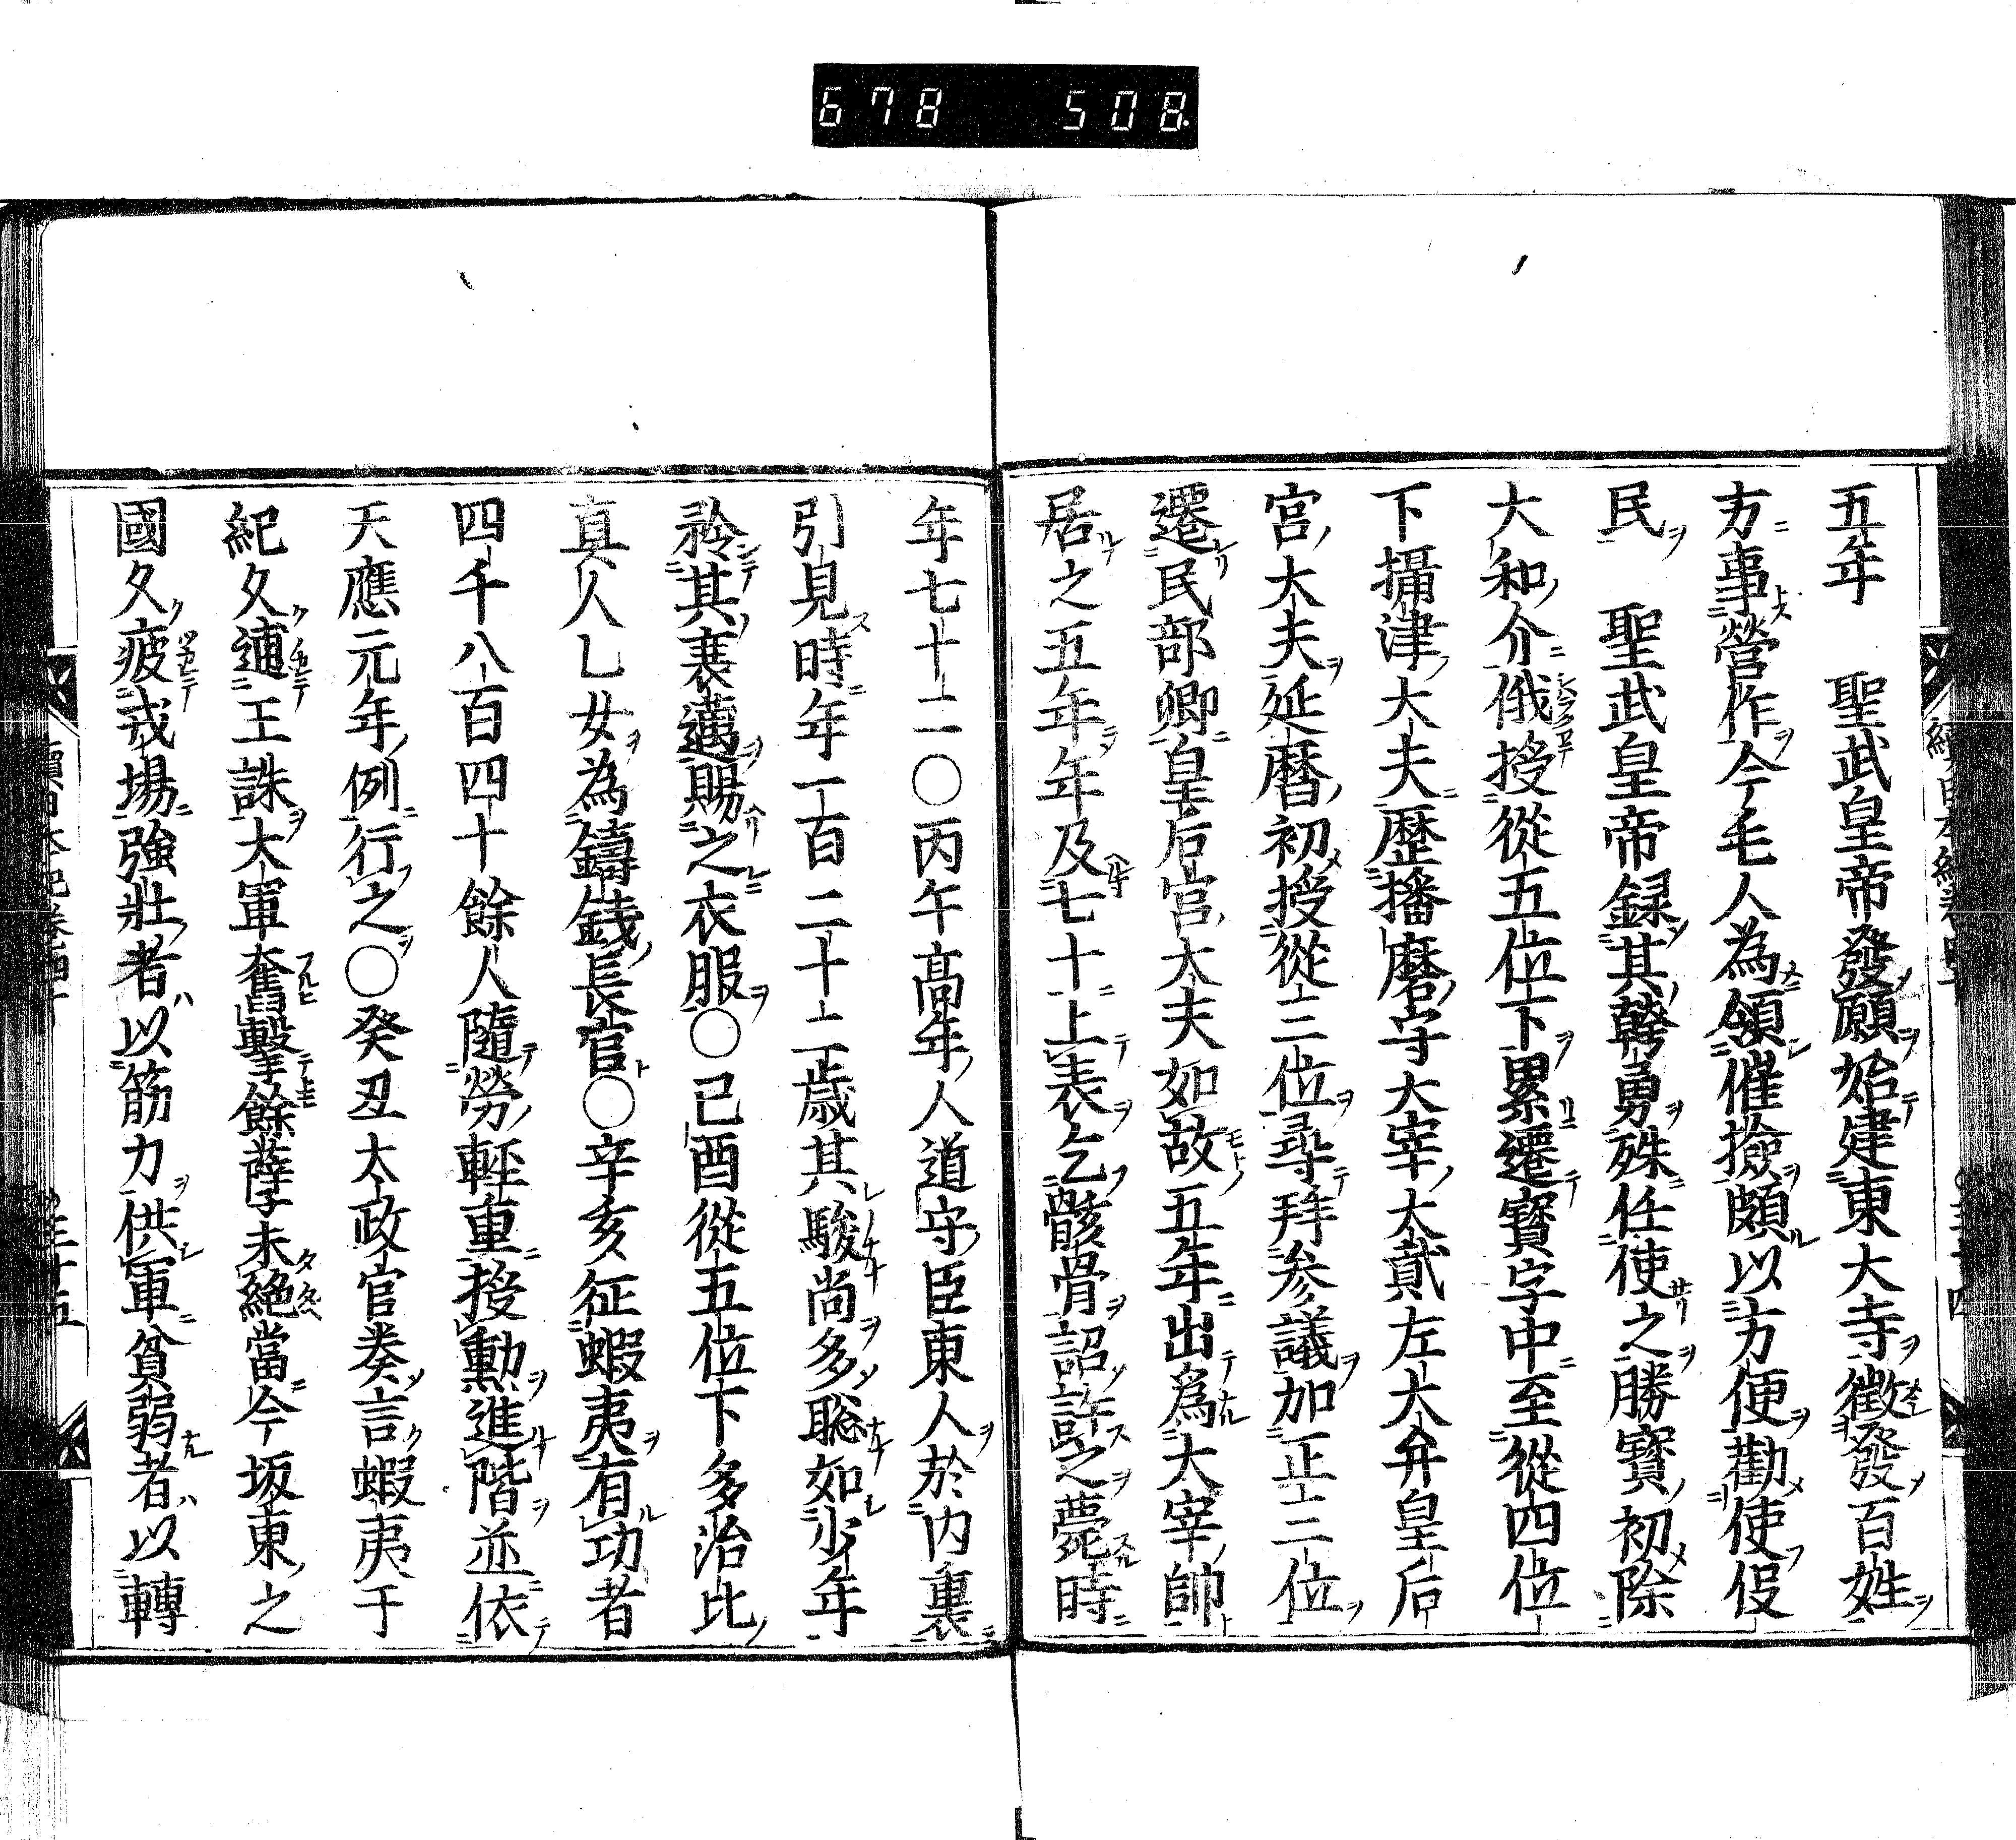 678 508
五年　聖武皇帝發願始建東大寺徴發百姓
方事營作今毛人為領催撿頗以方便勸使伇
民　聖武皇帝録其幹勇殊任使之勝寶初除
大和介俄授從五位下累遷寶字中至從四位
下攝津大夫歷播磨守大宰大貳左大弁皇后
宮大夫延曆初授從三位尋拜參議加正三位
遷民部卿皇后宮大夫如故五年出爲大宰帥
居之五年年及七十上表乞骸骨詔許之薨時
年七十二〇丙午高年人道守臣東人於内裏
引見時年一百二十二歳其駿尚多聡如少年
矜其衰邁賜之衣服〇己酉從五位下多治比
真人乙女為鑄錢長官〇辛亥征蝦夷有功者
四千八百四十餘人隨勞輕重授勳進階並依
天應元年例行之〇癸丑太政官奏言蝦夷于
紀久逋王誅大軍奮擊餘孽未絶當今坂東之
國久疲戎場強壯者以筋力供軍貧弱者以轉